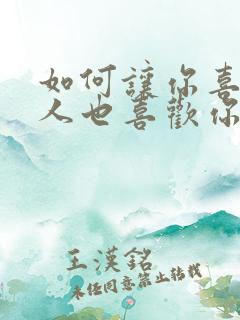 如何讓你喜
人也喜歡你
王漢銘
未经同意禁止转载